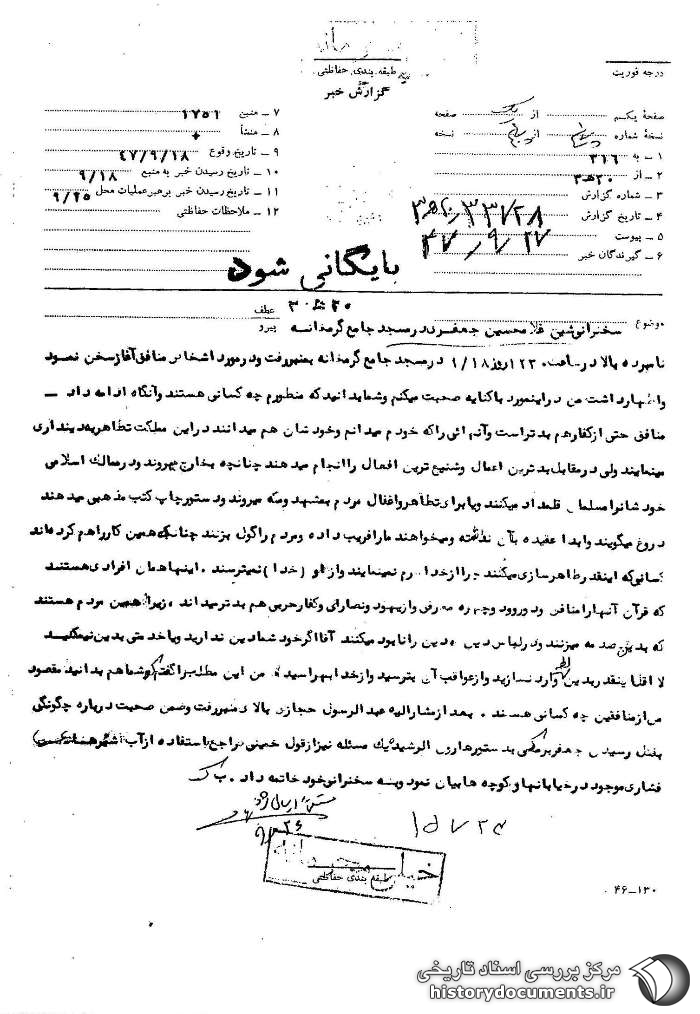 طبقه بندی حفاظتی
گزارش خبر
درجه فوریت
صفحهٔ یکم از یک صفحه
نسخهٔ شماره از نسخه
۱ ـ به ۳۱۶
۲ ـ از ۲۰ه۳
۳ ـ شماره گزارش ۳۳۷۲۸
۴ ـ تاریخ گزارش ۴۷٫۹٫۲۷
۵ ـ پیوست
۶ ـ گیرندگان خبر
۷ ـ منبع ۱۷۵۱
۸ ـ منشأ
۹ ـ تاریخ وقوع ۴۷/۹/۱۸
۱۰ ـ تاریخ رسیدن خبر به منبع ۹/۱۸
۱۱ ـ تاریخ رسیدن خبر برهبر عملیات محل ۹/۲۵
۱۲ ـ ملاحظات حفاظتی
بایگانی شود
موضوع سخنرانی شیخ غلامحسین جعفری در مسجد جامع گرمخانه
عطف
پیرو
نامبرده بالا در ساعت روز ۹/۱۸ در مسجد جامع گرمخانه بمنبر رفت و در مورد اشخاص منافق آغاز سخن نمود
واظهار داشت من در اینمورد باکنایه صحبت میکنم و شما بدانید که منظورم چه کسانی هستند وآنگاه ادامه داد ـ
منافق حتی از کفار هم بدتر است وآنهائی را که خودم میدانم وخودشان هم میدانند در این مملکت تظاهر بدینداری
مینمایند ولی در مقابل بدترین اعمال وشنیع ترین افعال را انجام میدهند چنانچه بخارج میروند ودر ممالک اسلامی
خودشانرا مسلمان قلمداد میکنند ویا برای تظاهر واغفال مردم بمشهد ومکه میروند ودستور چاپ کتب مذهبی میدهند
دروغ میگویند وابدا عقیده بآن نداشته ومیخواهند مارا فریب داده ومردم را گول بزنند چنانکه همین کار را هم کرده‌اند
کسانی که اینقدر ظاهر سازی میکنند چرا از خدا شرم نمینمایند واز او (خدا) نمیترسند . اینها همان افرادی هستند
که قرآن آنها را منافق ودورو ودو چهره معرفی واز یهود ونصارای وکفار حربی هم بدتر میداند . زیرا همین مردم هستند
که بدین صدمه میزنند ودر لباس دین ، دین را نابود میکنند آقا اگر خود شما دین ندارید ویا خدمتی بدین نمیکنید
لااقل اینقدر بدین لطمه وارد نسازید واز عواقب آن بترسید واز خدا بهراسید من این مطلب را گفتم که شما هم بدانید مقصود
من از منافقین چه کسانی هستند . بعد از مشارالیه عبدالرسول حجازی بالای منبر رفت وضمن صحبت درباره چگونگی
بقتل رسیدن جعفر برمکی بدستور هارون الرشید یک مسئله نیز از قول خمینی (راجع باستفاده از آب
فشاری موجود در خیابانها و کوچه ها بیان نمود وبه سخنرانی خود خاتمه داد . ب ک
۲۶
خیلی محرمانه
طبقه بندی حفاظتی
۴۶ــ۱۳۰
مرکز بررسی اسناد تاریخی
historydocuments.ir